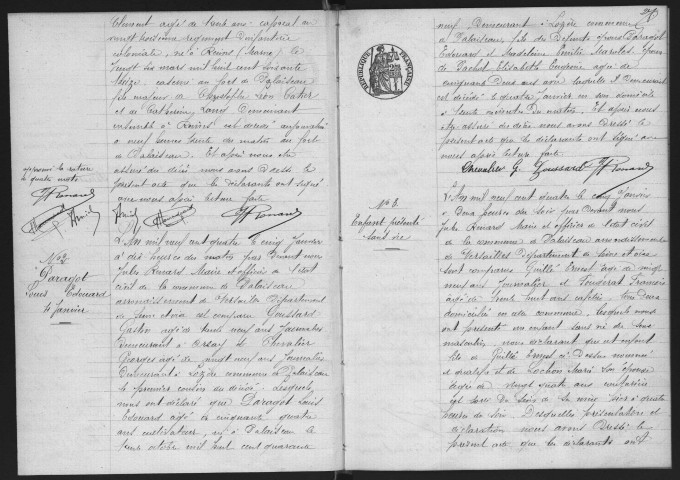 Clément âgé de trente ans caporal au
vingt troisième régiment d'infanterie
coloniale, né à Reims (Marne) le
vingt six mars mil huit cent soixante
treize, caserné au fort de Palaiseau
fils majeur de Christophe Léon
et de Catherine
ensemble à Reims est décédé
à neuf heures trente du matin au fort
de Palaiseau. Et après nous être
assuré du décès nous avons dressé le
présent acte que les déclarants ont signé
avec nous après lecture faite
approuvé la rature
de quatre mots
JRenard
JRenard
N° 2
Paragot
Louis Edouard
4 Janvier
L'An mil neuf cent quatre le cinq Janvier
à dix heures du matin par devant nous
Jules Renard Maire et officier de l'état
civil de la commune de Palaiseau
arrondissement de Versailles Département
de Seine et Oise ont comparu Goussard
Gaston âgé de trente neuf ans Journalier
demeurant à Orsay et Chevalier
Georges âgé de vingt neuf ans Journalier
Demeurant à Lozère commune de Palaiseau
le premier cousin du décédé. Lesquels
nous ont déclaré que Paragot Louis
Edouard âgé de cinquante quatre
ans cultivateur, né à Palaiseau le
trente octobre mil huit cent quarante
RÉPUBLIQUE FRANÇAISE
neuf Demeurant à Lozère commune
de Palaiseau, fils des Défunts époux Paragot
Edouard et Madeleine Emilie Époux
de Vachot Elisabeth Eugénie âgée de
cinquante Deux ans avec laquelle il Demeurait
est décédé le quatre Janvier en son domicile
à heures du matin. Et après nous
être assuré du décès nous avons Dressé le
présent acte que les déclarants ont signé avec
nous après lecture faite
Chevalier G. Goussard JRenard
N° 3
Enfant présenté
sans vie
L'An mil neuf cent quatre le cinq Janvier
à Deux heures du soir par Devant nous
Jules Renard Maire et officier de l'état civil
de la commune de Palaiseau arrondissement
de Versailles Département de Seine et Oise
sont comparus Guillé Ernest âgé de vingt
neuf ans Journalier et François
âgé de trente huit ans cafetier, tous Deux
domiciliés en cette commune, lesquels nous
ont présenté un enfant sans vie de sexe
masculin, nous déclarant que cet enfant
fils de Guillé Ernest ci Dessus nommé
et qualifié et de Lochon Marie son épouse
âgée de vingt quatre ans couturière
est sorti du sein de sa mère hier à quatre
heures du soir. Desquelles présentation et
déclaration nous avons Dressé le
présent acte que les déclarants ont